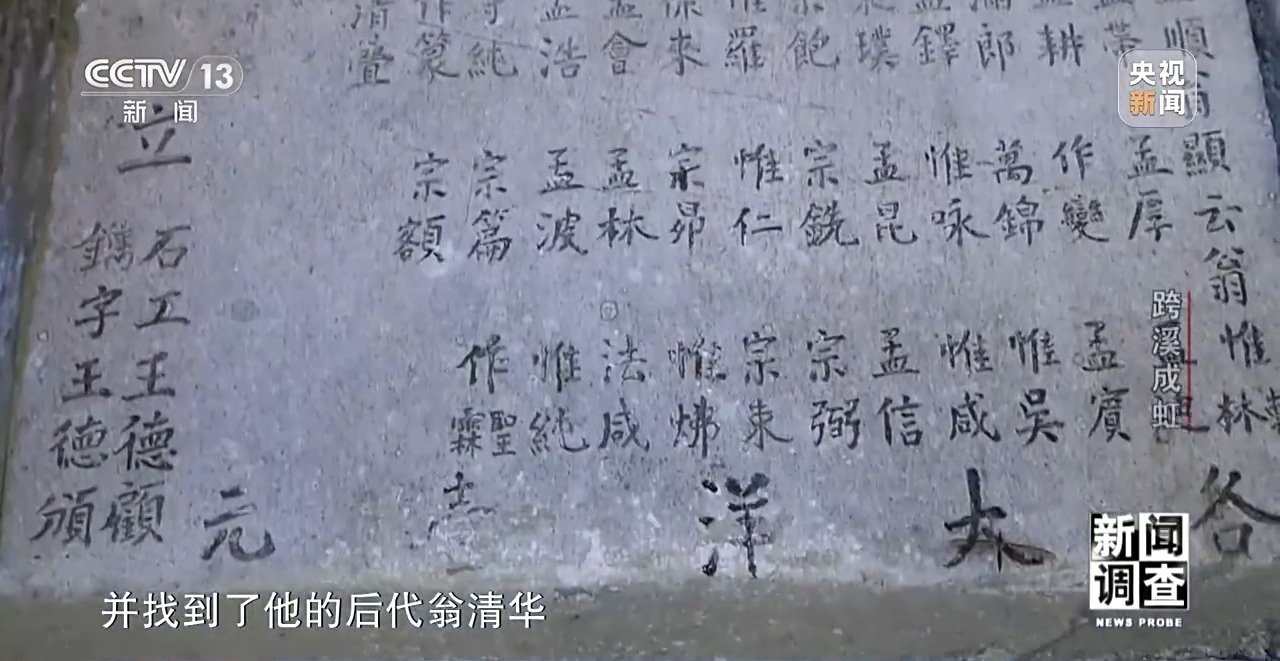 CCTV 13
新闻
央视
新闻
順翁顯云翁惟林
孟厚
孟賓
作變
惟吳
萬錦
惟咸
惟咏
孟信
郎
孟昆
宗弼
鐸
宗銑
宗束
璞
惟仁
惟炥
飽
宗昴
法咸
羅
孟林
惟純
來
孟波
作聖霖
孟會
宗篇
孟浩
宗額
純
耕
大
洋
志
元
立
石工王德顧
鐫字王德頒
跨溪成虹
新闻
调查
NEWS PROBE
并找到了他的后代翁清华